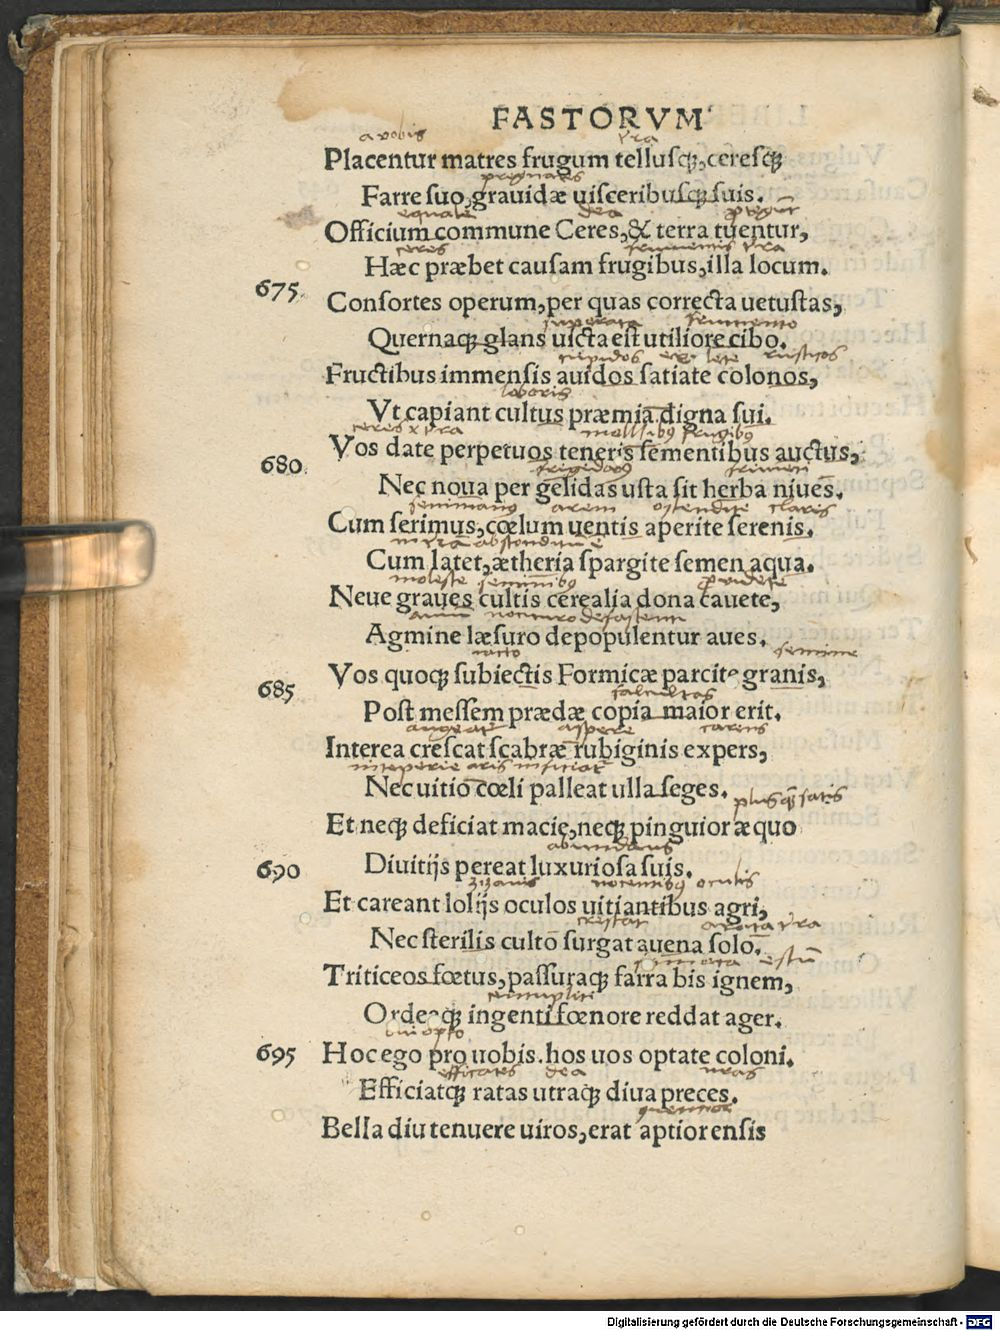 FASTORVM
a vobis
Placentur matres frugum tellusq;, ceresq;
pregnantes
Farre suo, grauidæ uisceribusq; suis.
dea
Officium commune Ceres, & terra tuentur,
ceres
Hæc præbet causam frugibus, illa locum.
675. Consortes operum, per quas correcta uetustas,
superata frumento
Quernaq; glans uicta est utiliore cibo.
cupidos rusticos
Fructibus immensis auidos satiate colonos,
laboris
Vt capiant cultus præmia digna sui.
mollibꝰ frugibꝰ
Vos date perpetuos teneris sementibus auctus,
680. Nec noua per gelidas usta sit herba niues.
ostendite claris
Cum serimus, cœlum uentis aperite serenis.
Cum latet, ætheria spargite semen aqua.
moleste
Neue graues cultis cerealia dona cauete,
Agmine læsuro depopulentur aues.
semine
Vos quoq; subiectis Formicæ parcite granis,
685 Post messem prædæ copia maior erit.
aspere carens
Interea crescat scabræ rubiginis expers,
Nec uitio cœli palleat ulla seges.
plus q̃ satis
Et neq; deficiat macie, neq; pinguior æquo
690 Diuitijs pereat luxuriosa suis.
nocentibꝰ oculis
Et careant lolijs oculos uitiantibus agri,
crescat
Nec sterilis culto surgat auena solo.
Triticeos fœtus, passuraq; farra bis ignem,
Ordeaq; ingenti fœnore reddat ager.
695 Hoc ego pro uobis. hos uos optate coloni.
dea
Efficiatq; ratas utraq; diua preces.
Bella diu tenuere uiros, erat aptior ensis
Digitalisierung gefördert durch die Deutsche Forschungsgemeinschaft - DFG